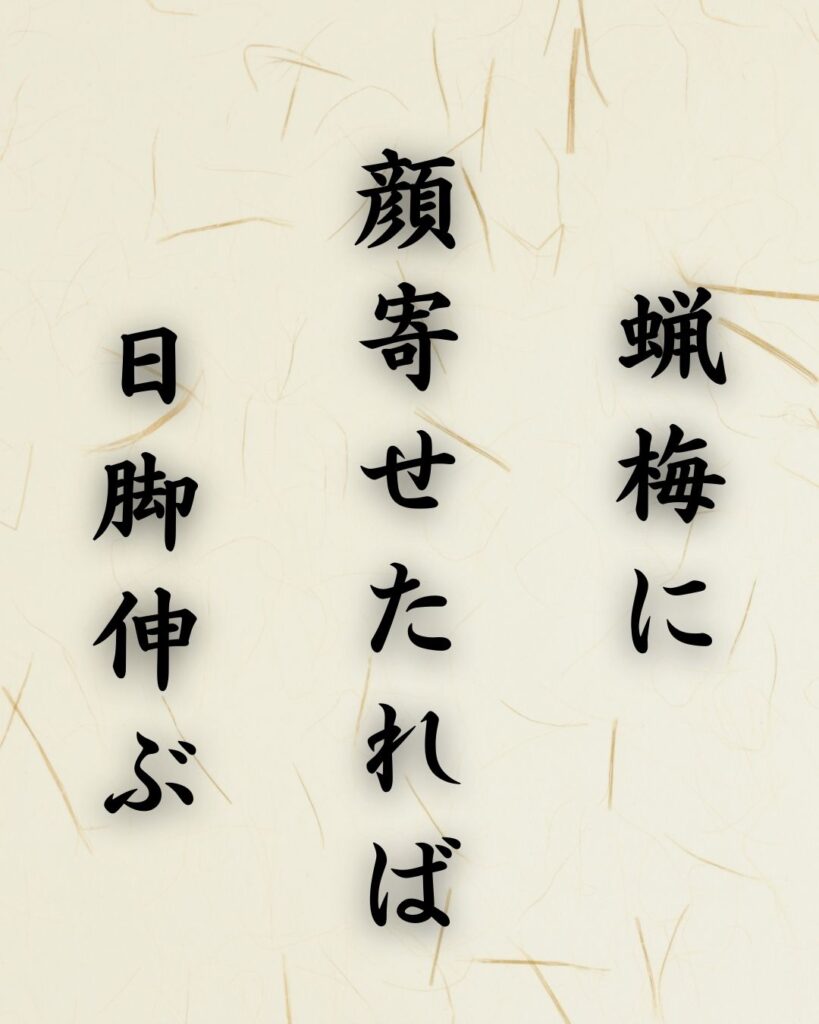 蝋梅に
顔寄せたれば
日脚伸ぶ